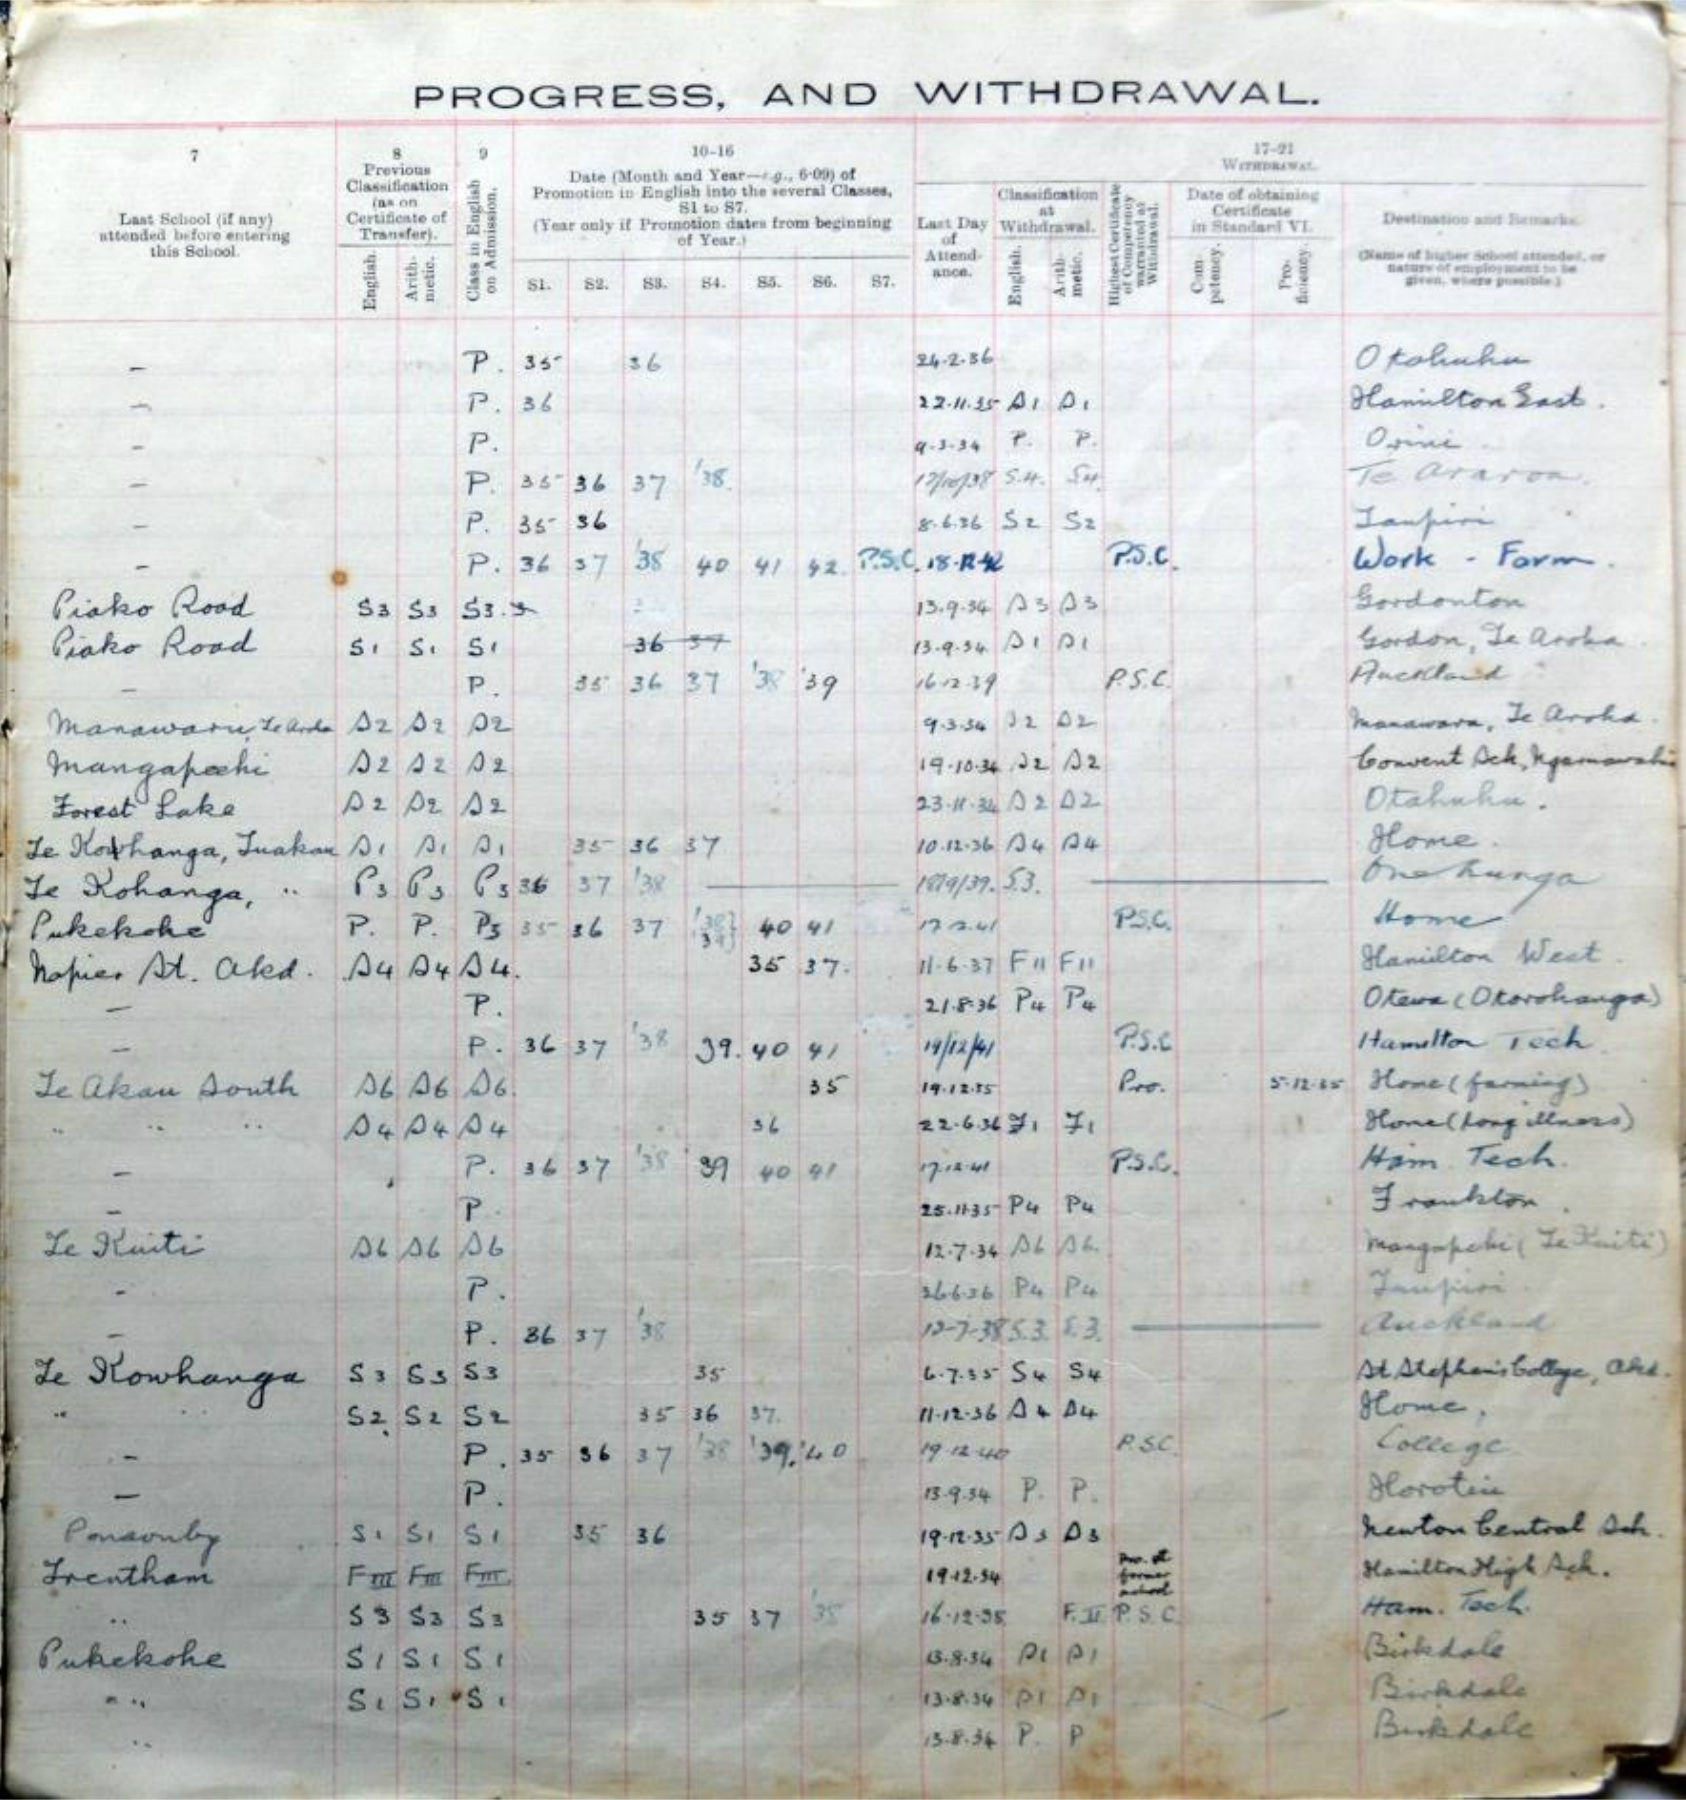 PROGRESS, AND WITHDRAWAL.
7 8 9 10-16 17-21
Last School (if any) attended before entering this School.
Previous Classification (as on Certificate of Transfer).
English. Arithmetic.
Class in English on Admission.
Date (Month and Year—e.g., 6·09) of Promotion in English into the several Classes, S1 to S7.
(Year only if Promotion dates from beginning of Year.)
S1. S2. S3. S4. S5. S6. S7.
WITHDRAWAL.
Last Day of Attendance.
Classification at Withdrawal.
English. Arithmetic.
Highest Certificate of Competency warranted at Withdrawal.
Date of obtaining Certificate in Standard VI.
Competency. Proficiency.
Destination and Remarks.
(Name of higher School attended, or nature of employment to be given, where possible.)
– P. 35 36 24.2.36 Otahuhu
– P. 36 22.11.35 S1 S1 Hamilton East.
– P. 9.3.34 P. P. Orini
– P. 35 36 37 '38. 17/10/38 S.4. S4. Te Araroa.
– P. 35 36 8.6.36 S2 S2 Taupiri
– P. 36 37 '38 40 41 42. P.S.C. 18.12.42 P.S.C. Work - Farm.
Piako Road S3 S3 S3. 13.9.34 S3 S3 Gordonton
Piako Road S1 S1 S1 36 37 13.9.34 S1 S1 Gordon, Te Aroha
– P. 35 36 37 '38 '39 16.12.39 P.S.C. Auckland
Manawaru, Te Aroha S2 S2 S2 9.3.34 S2 S2 Manawaru, Te Aroha.
Mangapeehi S2 S2 S2 19.10.34 S2 S2 Convent Sch, Ngaruawahia
Forest Lake S2 S2 S2 23.11.34 S2 S2 Otahuhu.
Te Kowhanga, Tuakau S1 S1 S1 35 36 37 10.12.36 S4 S4 Home.
Te Kohanga, " P3 P3 P3 36 37 '38 18/9/39. S.3. Onehunga
Pukekohe P. P. P3 35 36 37 '38} 39} 40 41 17.2.41 P.S.C. Home
Napier St. Akd. S4 S4 S4. 35 37. 11.6.37 F11 F11 Hamilton West.
– P. 21.8.36 P4 P4 Otewa (Otorohanga)
– P. 36 37 '38 39. 40 41 19/12/41 P.S.C Hamilton Tech
Te Akau South S6 S6 S6. 35 19.12.35 Pro. 5.12.35 Home (farming)
" " " S4 S4 S4 36 22.6.36 F1 F1 Home (long illness)
– P. 36 37 '38 39 40 41 17.12.41 P.S.C. Ham. Tech.
– P. 25.11.35 P4 P4 Frankton.
Te Kuiti S6 S6 S6 12.7.34 S6 S6. Mangapehi (Te Kuiti)
- P. 26.6.36 P4 P4 Taupiri.
– P. 36 37 '38 12-7-38 S.3. S.3. Auckland
Te Kowhanga S3 S3 S3 35 6.7.35 S4 S4 St Stephen's College, Akd.
" " S2 S2 S2 35 36 37. 11.12.36 S4 S4 Home.
– P. 35 36 37 '38 '39. '40 19.12.40 P.S.C. College
– P. 13.9.34 P. P. Horotiu
Ponsonby S1 S1 S1 35 36 19.12.35 S3 S3 Newton Central Sch.
Trentham FIII FIII FIII. 19.12.34 Pro. at former school Hamilton High Sch.
" S3 S3 S3 35 37 '38 16.12.38 F.II P.S.C. Ham. Tech.
Pukekohe S1 S1 S1 13.8.34 S1 S1 Birkdale
" " S1 S1 S1 13.8.34 S1 S1 Birkdale
" 13.8.34 P. P Birkdale